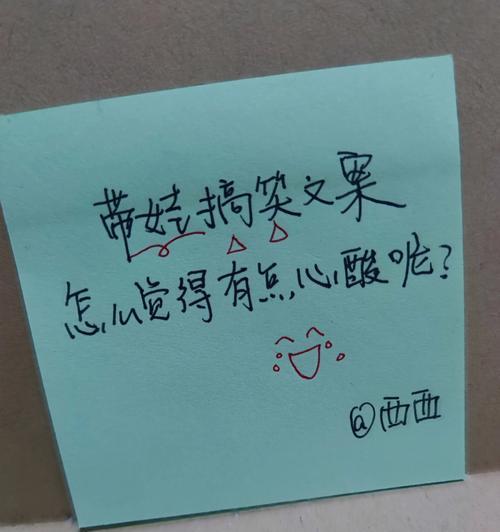 带娃搞笑文案
怎么觉得有点心酸呢?
@西西